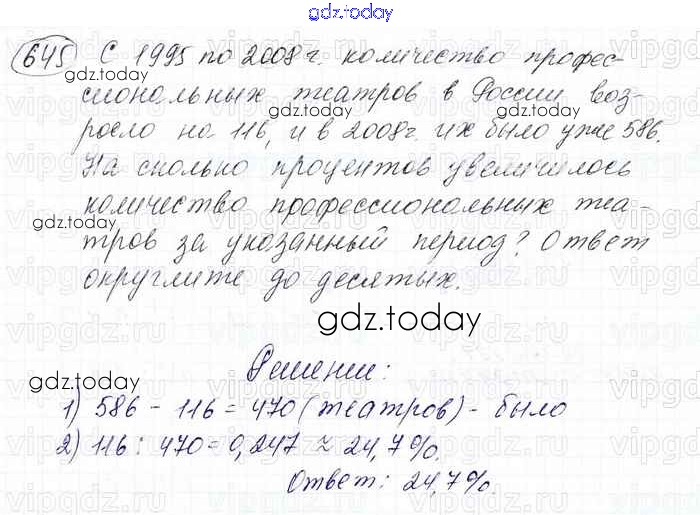 gdz.today
645 С 1995 по 2008 г. количество профес-
gdz.today
сиональных театров в России воз-
росло на 116, и в 2008 г. их было уже 586.
На сколько процентов увеличилось
количество профессиональных теа-
gdz.today
тров за указанный период? Ответ
округлите до десятых.
gdz.today
Решение:
gdz.today
1) 586 - 116 = 470 (театров) - было
2) 116 : 470 = 0,247 ≈ 24,7%.
Ответ: 24,7%.